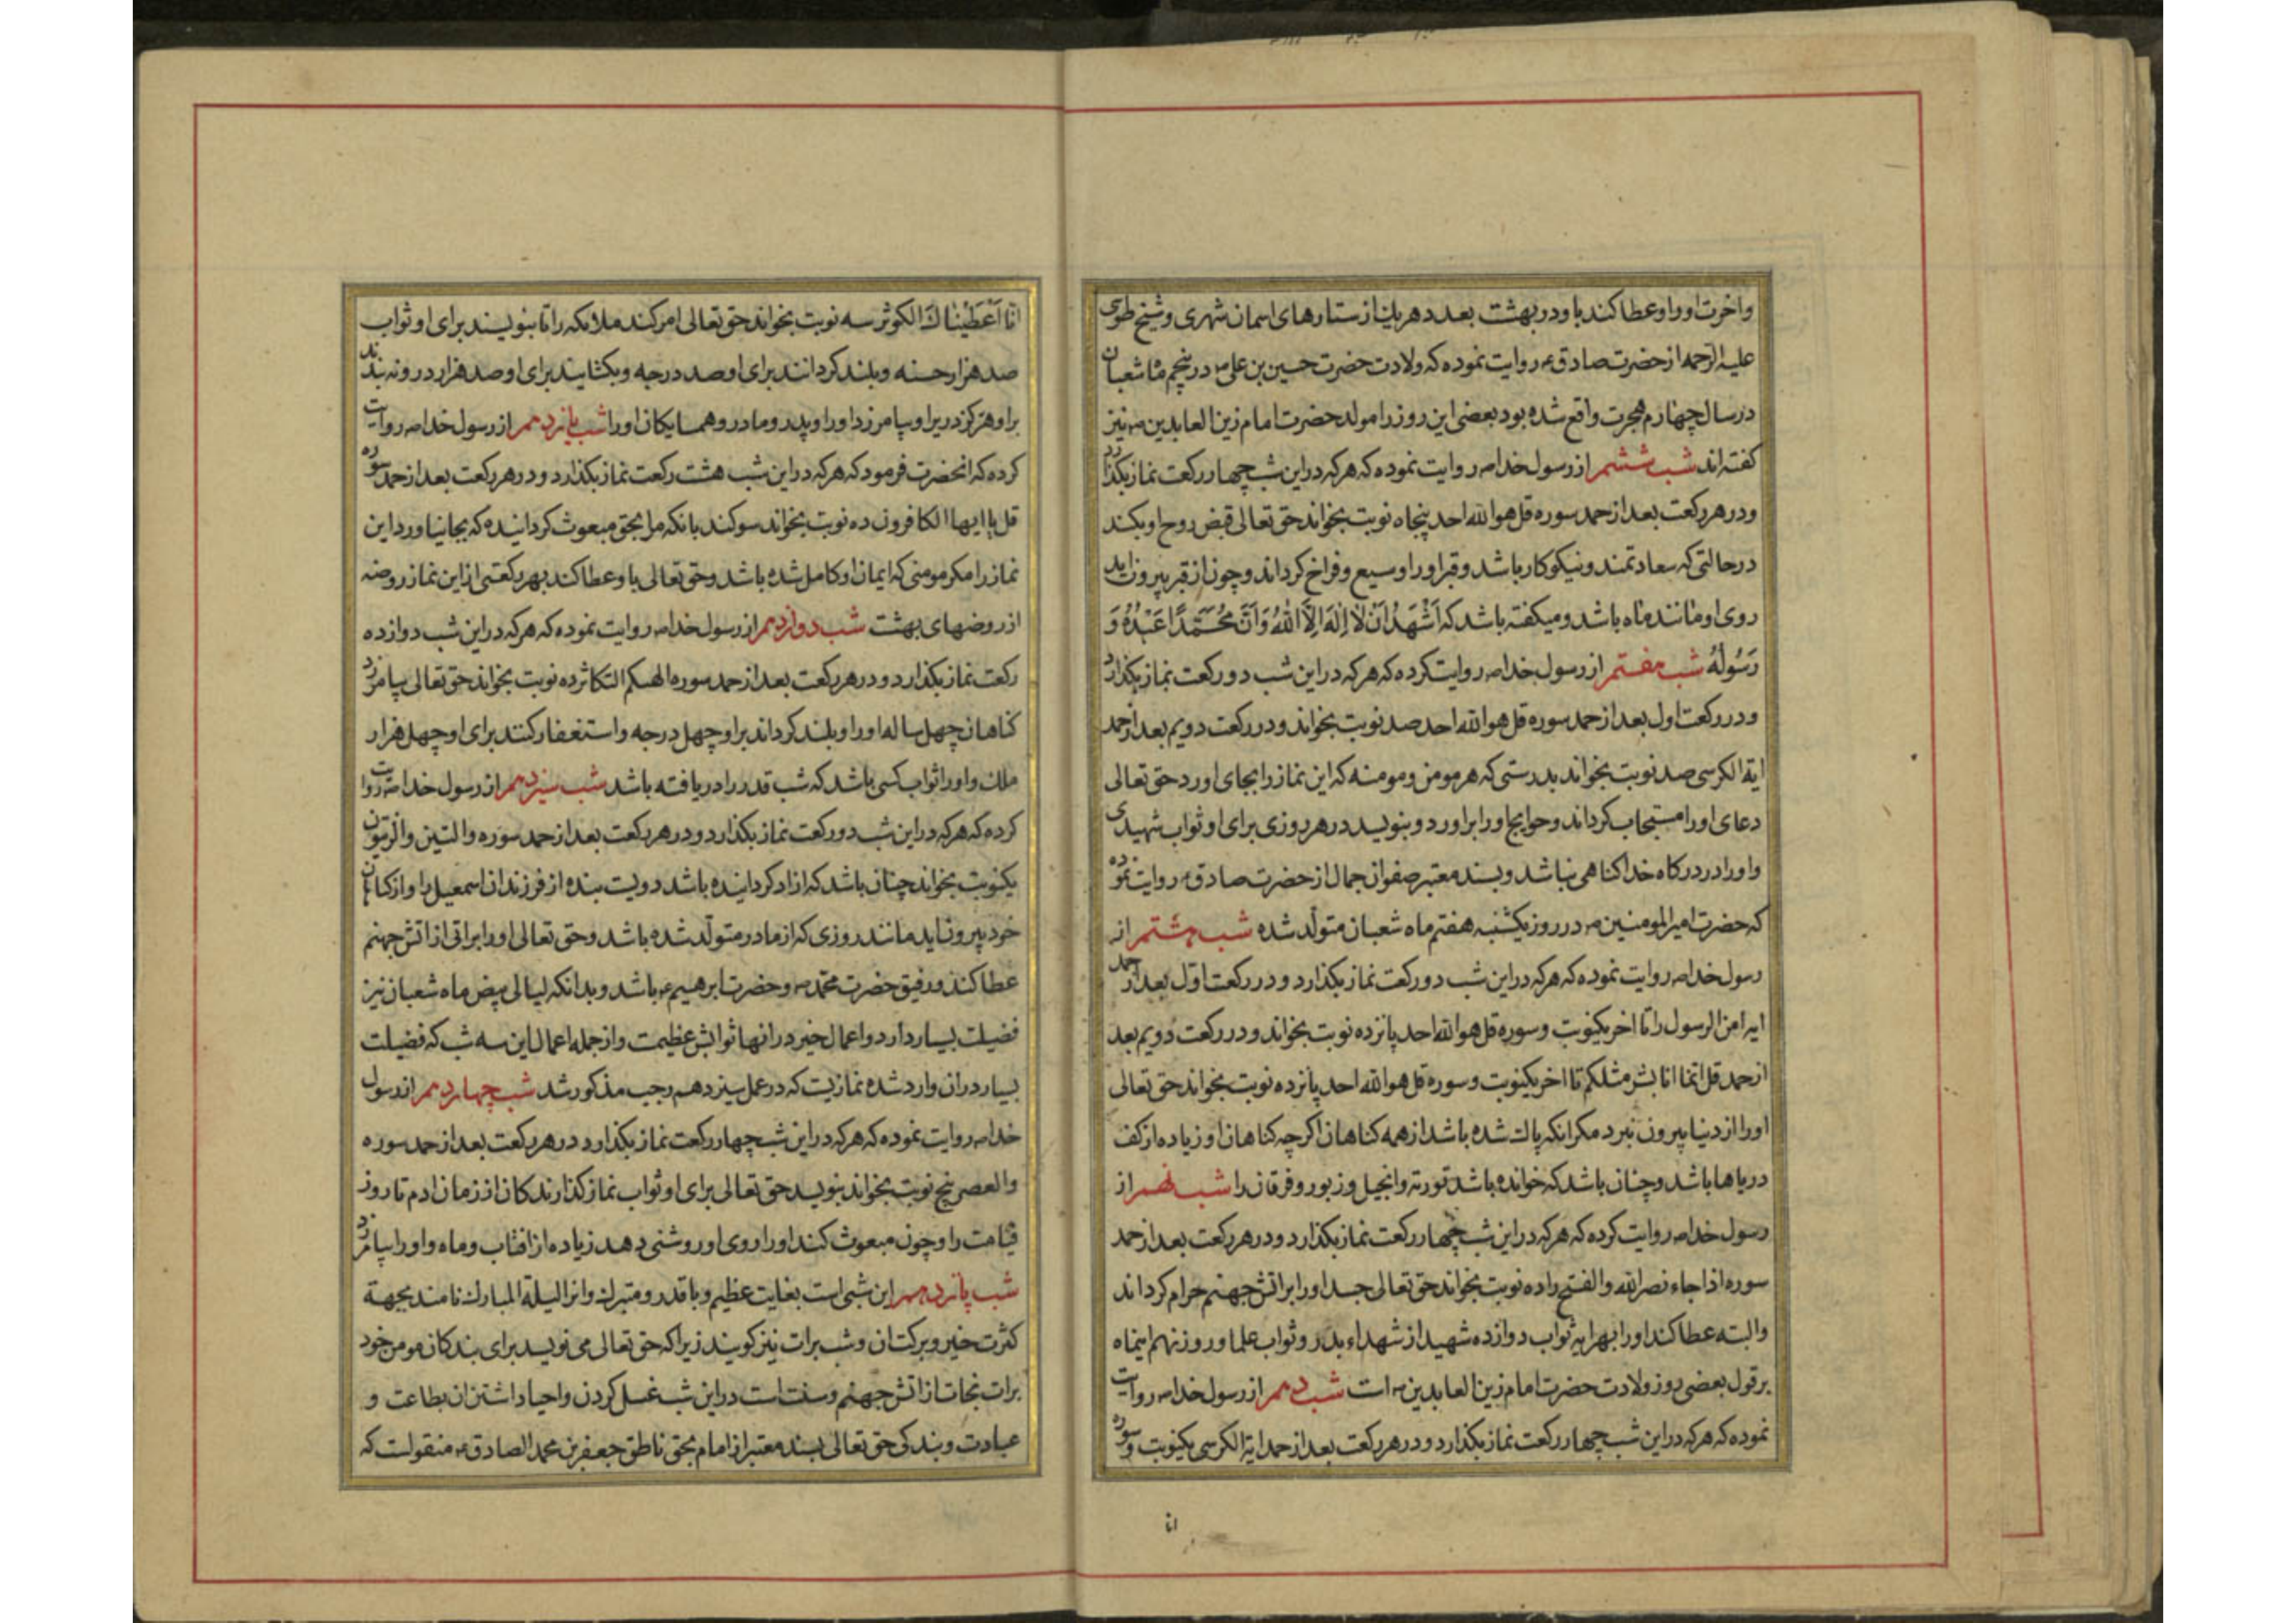 واخرت اورا و عطا کند باو در بهشت بعدد هر یک از ستارهای اسمان شهری و شیخ طوسی
علیه الرحمه از حضرت صادق ع روایت نموده که ولادت حضرت حسین بن علی ع در پنجم ماه شعبان
در سال چهارم هجرت واقع شده بود بعضی این روز را مولد حضرت امام زین العابدین ع نیز
کفته اند شب ششم از رسول خدا ص روایت نموده که هر که در این شب چهار رکعت نماز بکذارد
و در هر رکعت بعد از حمد سوره قل هو الله احد پنجاه نوبت بخواند حق تعالی قبض روح او بکند
در حالتی که سعادتمند و نیکوکار باشد و قبر او را وسیع و فراخ کرداند و چون از قبر بیرون اید
روی او مانند ماه باشد و میکفته باشد که اَشْهَدُ اَنْ لَا اِلٰهَ اِلَّا اللّٰهُ وَ اَنَّ مُحَمَّدًا عَبْدُهُ وَ
رَسُولُهُ شب هفتم از رسول خدا ص روایت کرده که هر که در این شب دو رکعت نماز بکذارد
و در رکعت اول بعد از حمد سوره قل هو الله احد صد نوبت بخواند و در رکعت دویم بعد از حمد
ایة الکرسی صد نوبت بخواند بدرستی که هر مومن و مومنه که این نماز را بجای اورد حق تعالی
دعای او را مستجاب کرداند و حوایج او را براورد و بنویسد در هر روزی برای او ثواب شهیدی
و او را در درکاه خدا کناهی نباشد و بسند معتبر صفوان جمال از حضرت صادق ع روایت نموده
که حضرت امیر المومنین ع در روز یکشنبه هفتم ماه شعبان متولّد شده شب هشتم از
رسول خدا ص روایت نموده که هر که در این شب دو رکعت نماز بکذارد و در رکعت اوّل بعد از حمد
ایه امن الرسول را تا اخر یکنوبت و سوره قل هو الله احد پانزده نوبت بخواند و در رکعت دویم بعد
از حمد قل انّما انا بشر مثلکم تا اخر یکنوبت و سوره قل هو الله احد پانزده نوبت بخواند حق تعالی
او را از دنیا بیرون نبرد مکر انکه پاک شده باشد از همه کناهان اکر چه کناهان او زیاده از کف
دریاها باشد و چنان باشد که خوانده باشد توریة و انجیل و زبور و فرقان را شب نهم از
رسول خدا ص روایت کرده که هر که در این شب چهار رکعت نماز بکذارد و در هر رکعت بعد از حمد
سوره اذا جاء نصر الله و الفتح را ده نوبت بخواند حق تعالی جسد او را بر اتش جهنم حرام کرداند
و البته عطا کند او را بهر ایه ثواب دوازده شهید از شهداء بدر و ثواب علما و روز نهم اینماه
بر قول بعضی روز ولادت حضرت امام زین العابدین ع است شب دهم از رسول خدا ص روایت
نموده که هر که در این شب چهار رکعت نماز بکذارد و در هر رکعت بعد از حمد ایة الکرسی یکنوبت و سوره
انا
انا اَعْطَیْنَاكَ الکوثر سه نوبت بخواند حق تعالی امر کند ملائکه را تا بنویسند برای او ثواب
صد هزار حسنه و بلند کردانند برای او صد درجه و بکشایند برای او صد هزار در و نه بندند
بر او هرکز دریرا و بیامرزد او را و پدر و مادر و همسایکان او را شب یازدهم از رسول خدا ص روایت
کرده که انحضرت فرمود که هر که در این شب هشت رکعت نماز بکذارد و در هر رکعت بعد از حمد سوره
قل یا ایها الکافرون ده نوبت بخواند سوکند بانکه مرا بحق مبعوث کردانیده که بجا نیاورد این
نماز را مکر مومنی که ایمان او کامل شده باشد و حق تعالی باو عطا کند بهر رکعتی از این نماز روضه
از روضهای بهشت شب دوازدهم از رسول خدا ص روایت نموده که هر که در این شب دوازده
رکعت نماز بکذارد و در هر رکعت بعد از حمد سوره الهیکم التکاثر ده نوبت بخواند حق تعالی بیامرزد
کناهان چهل ساله او را و بلند کرداند بر او چهل درجه و استغفار کنند برای او چهل هزار
ملک و او را ثواب کسی باشد که شب قدر را دریافته باشد شب سیزدهم از رسول خدا ص روایت
کرده که هر که در این شب دو رکعت نماز بکذارد و در هر رکعت بعد از حمد سوره والتین والزیتون
یکنوبت بخواند چنان باشد که ازاد کردانیده باشد دویست بنده از فرزندان اسمعیل را و از کناهان
خود بیرون اید مانند روزی که از مادر متولّد شده باشد و حق تعالی او را براتی از اتش جهنم
عطا کند و رفیق حضرت محمّد ص و حضرت ابرهیم ع باشد و بدانکه لیالی بیض ماه شعبان نیز
فضیلت بسیار دارد و اعمال خیر در انها ثوابش عظیمست و از جمله اعمال این سه شب که فضیلت
بسیار در ان وارد شده نمازیست که در عمل سیزدهم رجب مذکور شد شب چهاردهم از رسول
خدا ص روایت نموده که هر که در این شب چهار رکعت نماز بکذارد در هر رکعت بعد از حمد سوره
والعصر پنج نوبت بخواند بنویسد حق تعالی برای او ثواب نمازکذارندکان از زمان ادم تا روز
قیامت را و چون مبعوث کند او را روی او روشنی دهد زیاده از افتاب و ماه و او را بیامرزد
شب پانزدهم این شبی است بغایت عظیم و باقدر و متبرک و انرا لیلة المبارک نامند بجهة
کثرت خیر و برکت ان و شب برات نیز کویند زیرا که حق تعالی می نویسد برای بندکان مومن خود
برات نجات از اتش جهنم و سنت است در این شب غسل کردن و احیا داشتن ان بطاعت و
عبادت و بندکی حق تعالی بسند معتبر از امام بحق ناطق جعفر بن محمد الصادق ع منقولست که